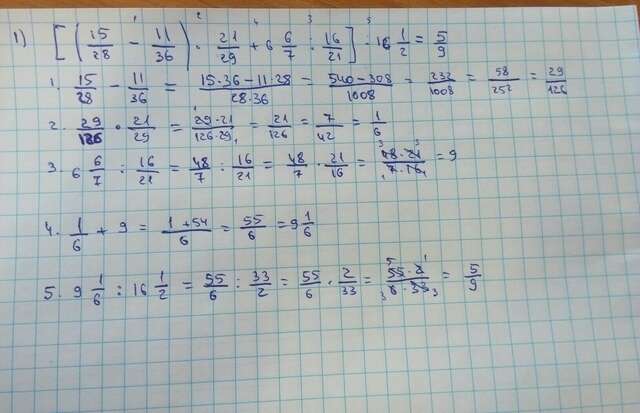 1) [(15/28 - 11/36) · 21/29 + 6 6/7 : 16/21] : 16 1/2 = 5/9
1. 15/28 - 11/36 = (15·36-11·28)/(28·36) = (540-308)/1008 = 232/1008 = 58/252 = 29/126
2. 29/126 · 21/29 = (29·21)/(126·29) = 21/126 = 7/42 = 1/6
3. 6 6/7 : 16/21 = 48/7 : 16/21 = 48/7 · 21/16 = (48·21)/(7·16) = 9
4. 1/6 + 9 = (1+54)/6 = 55/6 = 9 1/6
5. 9 1/6 : 16 1/2 = 55/6 : 33/2 = 55/6 · 2/33 = (55·2)/(6·33) = 5/9